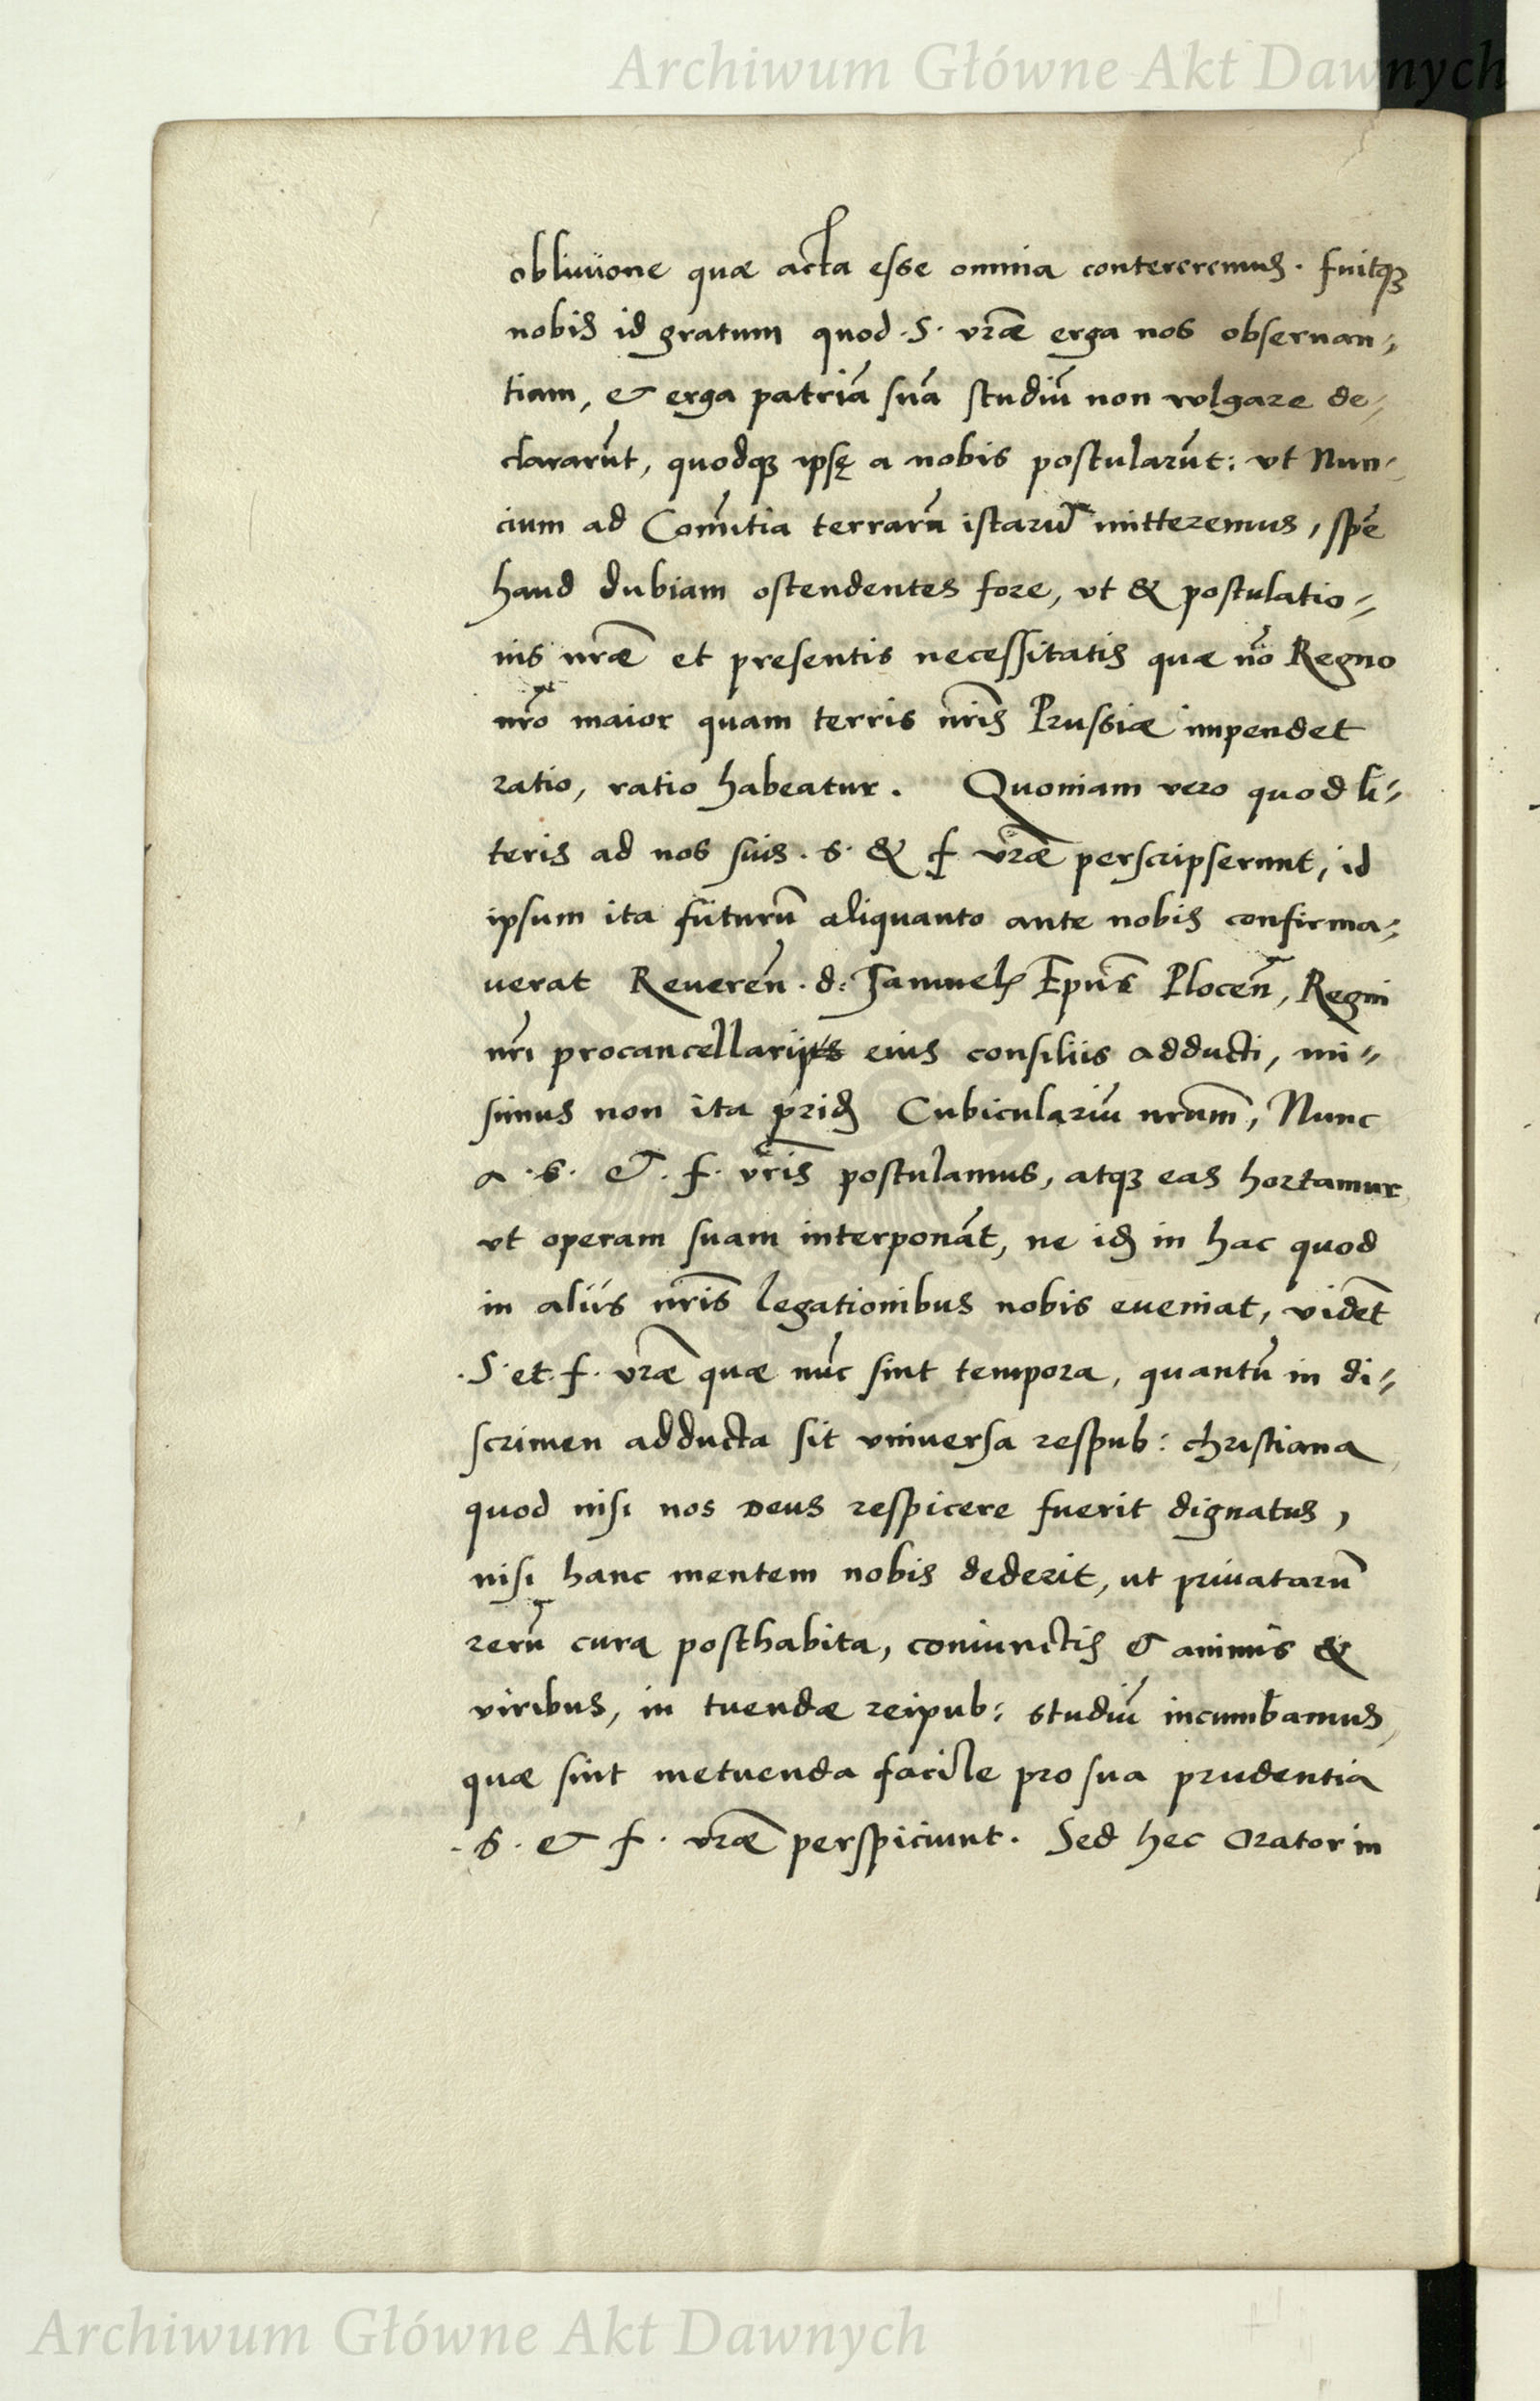 Archiwum Główne Akt Dawnych
obliuione quæ acta esse omnia contereremus. fuitq3
nobis id gratum quod .S. vr̃æ erga nos obseruan=
tiam, & erga patriã suã studiũ non vulgare de=
clararũt, quodq3 ipsę a nobis postularũt: vt Nun=
cium ad Comĩtia terrarũ istarũ mitteremus, spẽ
haud dubiam ostendentes fore, vt & postulatio=
nis nr̃æ et presentis necessitatis quæ nõ Regno
nr̃o maior quam terris nr̃is Prussiæ impendet
ratio, ratio habeatur. Quoniam vero quod li=
teris ad nos suis .S. & f vr̃æ perscripserunt, id
ipsum ita futurũ aliquanto ante nobis confirma=
uerat Reuereñ. d: Samuel Ep̃us Plocen̄, Regni
nr̃i procancellarius eius consiliis adducti, mi=
simus non ita prid3 Cubiculariũ nr̃um, Nunc
a .S. & .f. vr̃is postulamus, atq3 eas hortamur,
vt operam suam interponãt, ne id3 in hac quod
in aliis nr̃is legationibus nobis eueniat, vidẽt
.S. et .f. vr̃æ quæ nũc sint tempora, quantũ in di=
scrimen adducta sit vniuersa respub: christiana,
quod nisi nos Deus respicere fuerit dignatus,
nisi hanc mentem nobis dederit, ut priuatarũ
rerũ cura posthabita, coniunctis & animis &
viribus, in tuendæ reipub: studiũ incumbamus,
quæ sint metuenda facile pro sua prudentia
.S. & f. vr̃æ perspiciunt. Sed hec Orator in
Archiwum Główne Akt Dawnych